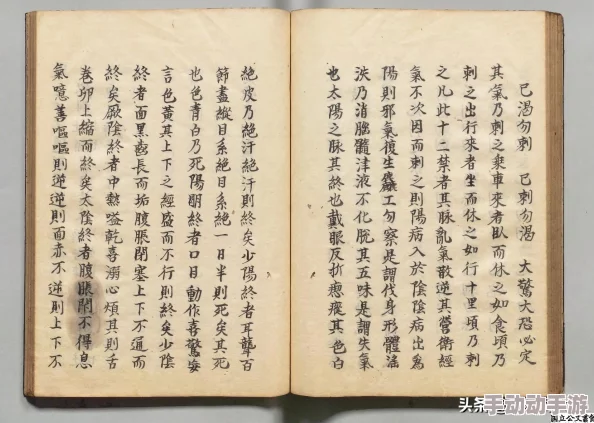 已渴勿刺 已刺勿渴 大驚大恐必定
其氣乃刺之乘車來者臥而休之如食頃乃
刺之出行來者坐而休之如行十里頃乃刺
之凡此十二禁者其脉亂氣散逆其營衛經
氣不次因而刺之則陽病入於陰陰病出為
陽則邪氣復生麤工勿察是謂伐身形體淫
泆乃消腦髓津液不化脫其五味是謂失氣
也太陽之脉其終也戴眼反折瘛瘲其色白
絕皮乃絕汗絕汗則終矣少陽終者耳聾百
節盡縱目系絕目系絕一日半則死矣其死
也色青白乃死陽明終者口目動作喜驚妄
言色黃其上下之經盛而不行則終矣少陰
終者面黑齒長而垢腹脹閉塞上下不通而
終矣厥陰終者中熱嗌乾喜溺心煩甚則舌
卷卵上縮而終矣太陰終者腹脹閉不得息
氣噫善嘔嘔則逆逆則面赤不逆則上下不
头条
手动动手游
国立公文書館